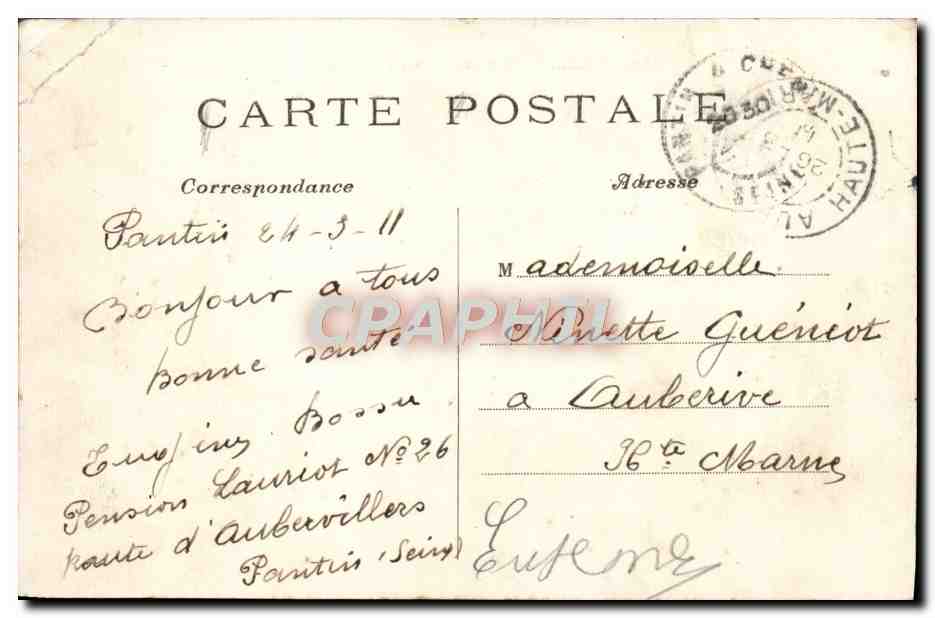 CARTE POSTALE
Correspondance
Adresse
Pantin 24-3-11
Bonjour a tous
bonne santé
Bossu
Pension Lauriot No 26
Route d'Aubervillers
Pantin (Seine)
Mademoiselle
Ninette Guéniot
a Auberive
Hte Marne
PANTIN
HAUTE-MARNE
CPAPHIL